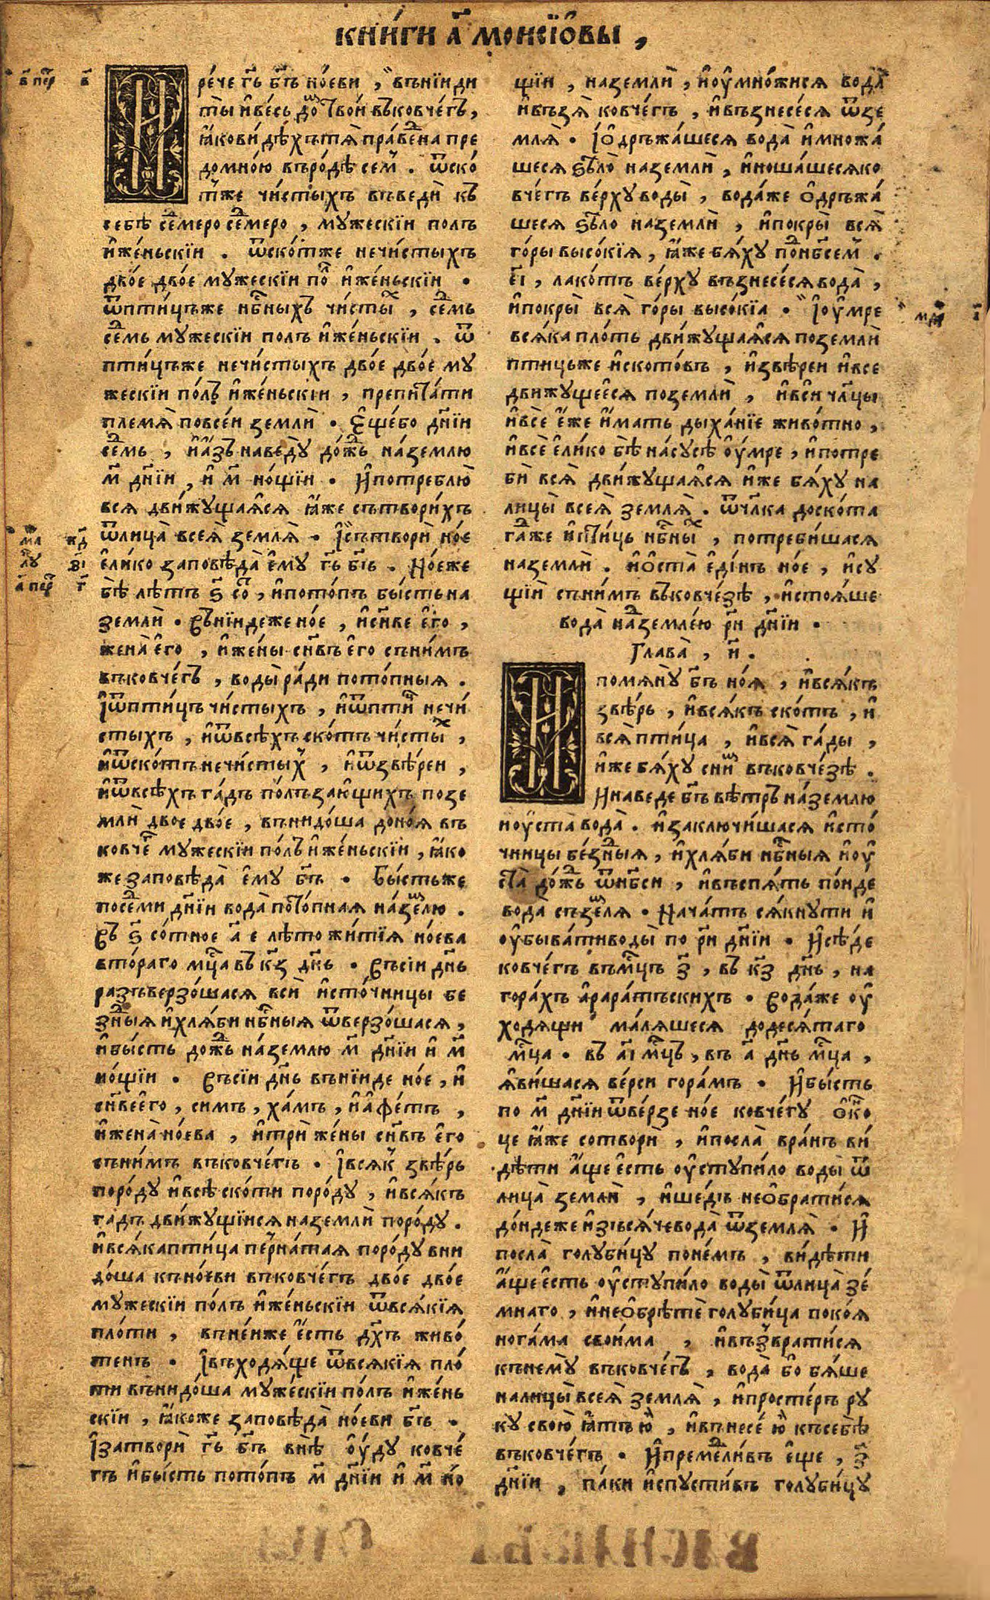 книги а҃ моисїѡвы ,
в҃ пер҇  в҃
И рече гь҃ бг҃ъ ноеви , вънїиди
ты и весь до̑ твой въковчегъ ,
ꙗко видѣхътѧ праве̑на пре
домною въродѣ сем̑ . ѿско
т̾же чистыхъ въведи къ
себѣ се̑меро се̑меро , мужескїи полъ
и женьскїи . ѿскот̾же нечистыхъ
двое двое мужескїи по̑ и женьскїи .
ѿптицъже нб҃ныхъ чисты̑ , се̑мь
се̑мь мужескїи полъ и женьскїи . ѿ
птицъже нечистыхъ двое двое му
жескїи полъ и женьскїи , препитати
племѧ повсеи земли . Еще бо дн҃їи
се̑мь , и азъ наведу дож̑ь на землю
м҃ дн҃їи , и м҃ нощїи . И потреблю
всѧ движущаѧсѧ ꙗже сътворихъ
ѿлица всеѧ землѧ . І сътвори ное
елико заповѣда ему гь҃ бг҃ъ . Ноеже
бѣ лѣтъ ѕ҃ со̑ , и потопъ бысть на
земли . Вънїидеже ное , и сн҃ве его ,
жена его , и жены сн҃въ его съ нимъ
въковчегъ , воды ради потопныѧ .
І ѿптицъ чистыхъ , и ѿпти̑ нечи
стыхъ , и ѿвсѣхъ скотъ чисты̑ ,
и ѿскотъ нечистых̑ , и ѿзвѣреи ,
и ѿвсѣхъ гадъ полъзающихъ позе
мли двое двое , вънидоша доноѧ въ
ковче̑ мужескїи полъ и женьскїи , ꙗко
же заповѣда ему бг҃ъ . Бысть же
посеми дн҃їи вода потопнаѧ на зе̑лю .
Въ ѕ҃ сотное а҃ е лѣто житїѧ ноева
втораго мц҃а въ кз҃ дн҃ь . Въсїи дн҃ь
разъверзошасѧ вси источницы бе
зд̑ныѧ и хлѧби нб҃ныѧ ѿверзошасѧ ,
и бысть дож̑ь на землю м҃ дн҃їи и м҃
нощїи . Въсїи дн҃ь вънїиде ное , и
сн҃ве его , симъ , хамъ , и афетъ ,
и жена ноева , и три жены сн҃въ его
съ нимъ въковчегъ . І всѧк̑ звѣрь
породу и всѣ скоти породу , и всѧкъ
гадъ движущїисѧ на земли породу .
и всѧка птица перънатаѧ породу вни
доша къ ноеви въковчегъ двое двое
мужескїи полъ и женьскїи ѿвсѧкїѧ
плоти , въ неиже есть дх҃ъ живо
тенъ . І въходѧще ѿвсѧкїѧ пло
ти вънидоша мужескїи полъ и жень
скїи , ꙗкоже заповѣда ноеви бг҃ъ .
І затвори гь҃ бг҃ъ внѣ оуду ковче
гъ и бысть потопъ м҃ дн҃їи и м҃ но
щїи , на земли , и оумножисѧ вода
и възѧ ковчегъ , и възнесесѧ ѿзе
млѧ . І одръжашесѧ вода и множа
шесѧ ѕѣло на земли , и ношашесѧ ко
вчегъ верху воды , водаже одръжа
шесѧ ѕѣло на земли , и покры всѧ
горы высокїѧ , ꙗже бѧху под̑ нб҃сем̑ .
е҃і , лакотъ верху възнесесѧ вода ,
и покры всѧ горы высокїа . І оумре
всѧка плоть движущаѧсѧ поземли
птицьже и скотовъ , и звѣреи и все
движущеесѧ поземли , и вси чл҃цы
и все еже имать дыханїе животно ,
и все елико бѣ на сусѣ оумре , и потре
би всѧ движущаѧсѧ иже бѧху на
лицы всеѧ землѧ . ѿчл҃ка до скота
гаже и птиць нб҃ны̑ , потребишасѧ
на земли . и оста единъ ное , и су
щїи съ нимъ въковчезѣ , и стоѧше
вода на̑ землею рн҃ дн҃їи .
Глава , и҃ .
И помѧну бг҃ъ ноѧ , и всѧкъ
звѣрь , и всѧкъ скотъ , и
всѧ птица , и всѧ гады ,
иже бѧху сни̑ въковчезѣ .
И наведе бг҃ъ вѣтръ на землю
и оуста вода . и заключишасѧ исто
чницы безд̑ныѧ , и хлѧби нб҃ныѧ и оу
ста дож̑ь ѿнб҃си , и въспѧть поиде
вода съ зе̑лѧ . Начатъ сѧкнути и
оубывати воды по рн҃ дн҃їи . И сѣде
ковчегъ въ мц҃ъ з҃ , въ кз҃ дн҃ь , на
горахъ араратъскихъ . Водаже оу
ходѧщи малѧшесѧ до десѧтаго
мц҃а . въ а҃і мц҃ъ , въ а҃ дн҃ь мц҃а ,
ꙗвишасѧ верси горамъ . И бысть
по м҃ дн҃їи ѿверзе ное ковчегу око̑
це ꙗже сотвори , и посла вранъ ви
дѣти аще есть оуступило воды ѿ
лица земли , и шедъ не обратисѧ
дондеже изъсѧче вода ѿземлѧ . И
посла голубицу по немъ , видѣти
аще есть оуступило воды ѿлица зе
мнаго , и не обрѣте голубица покоѧ
ногама своима , и възвратисѧ
къ нему въковчегъ , вода бо бѧше
на лицы всеѧ землѧ , и простеръ ру
ку свою ꙗтъ ю̑ , и внесе ю̑ къ себѣ
въковчегъ . И преме̑ливъ еще , з҃
дн҃їи , паки испустивъ голубицу